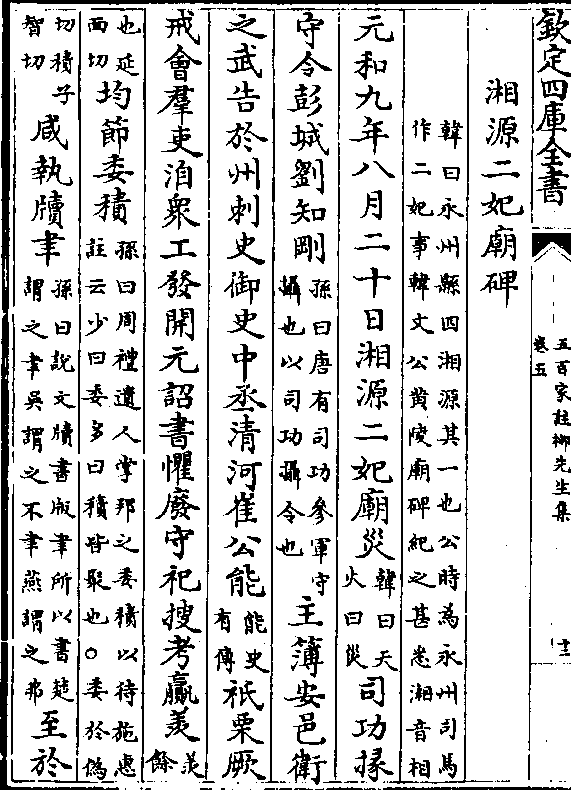 欽定四庫全書
五百家註柳先生集
卷五
十三
湘源二妃廟碑
韓曰永州縣四湘源其一也公時為永州司馬
作二妃事韓文公黄陵廟碑紀之甚悉湘音相
元和九年八月二十日湘源二妃廟災韓曰天火曰災司功掾
守令彭城劉知剛孫曰唐有司功參軍守攝也以司功攝令也主簿安邑衛
之武告於州刺史御史中丞清河崔公能能史有傳祇栗厥
戒會羣吏洎衆工發開元詔書懼廢守祀搜考羸羨羨餘
也延面切均節委積孫曰周禮遺人掌邦之委積以待施惠註云少曰委多曰積皆聚也○委於偽
切積子智切咸執牘聿孫曰說文牘書版聿所以書楚謂之聿吳謂之不聿燕謂之弗至於